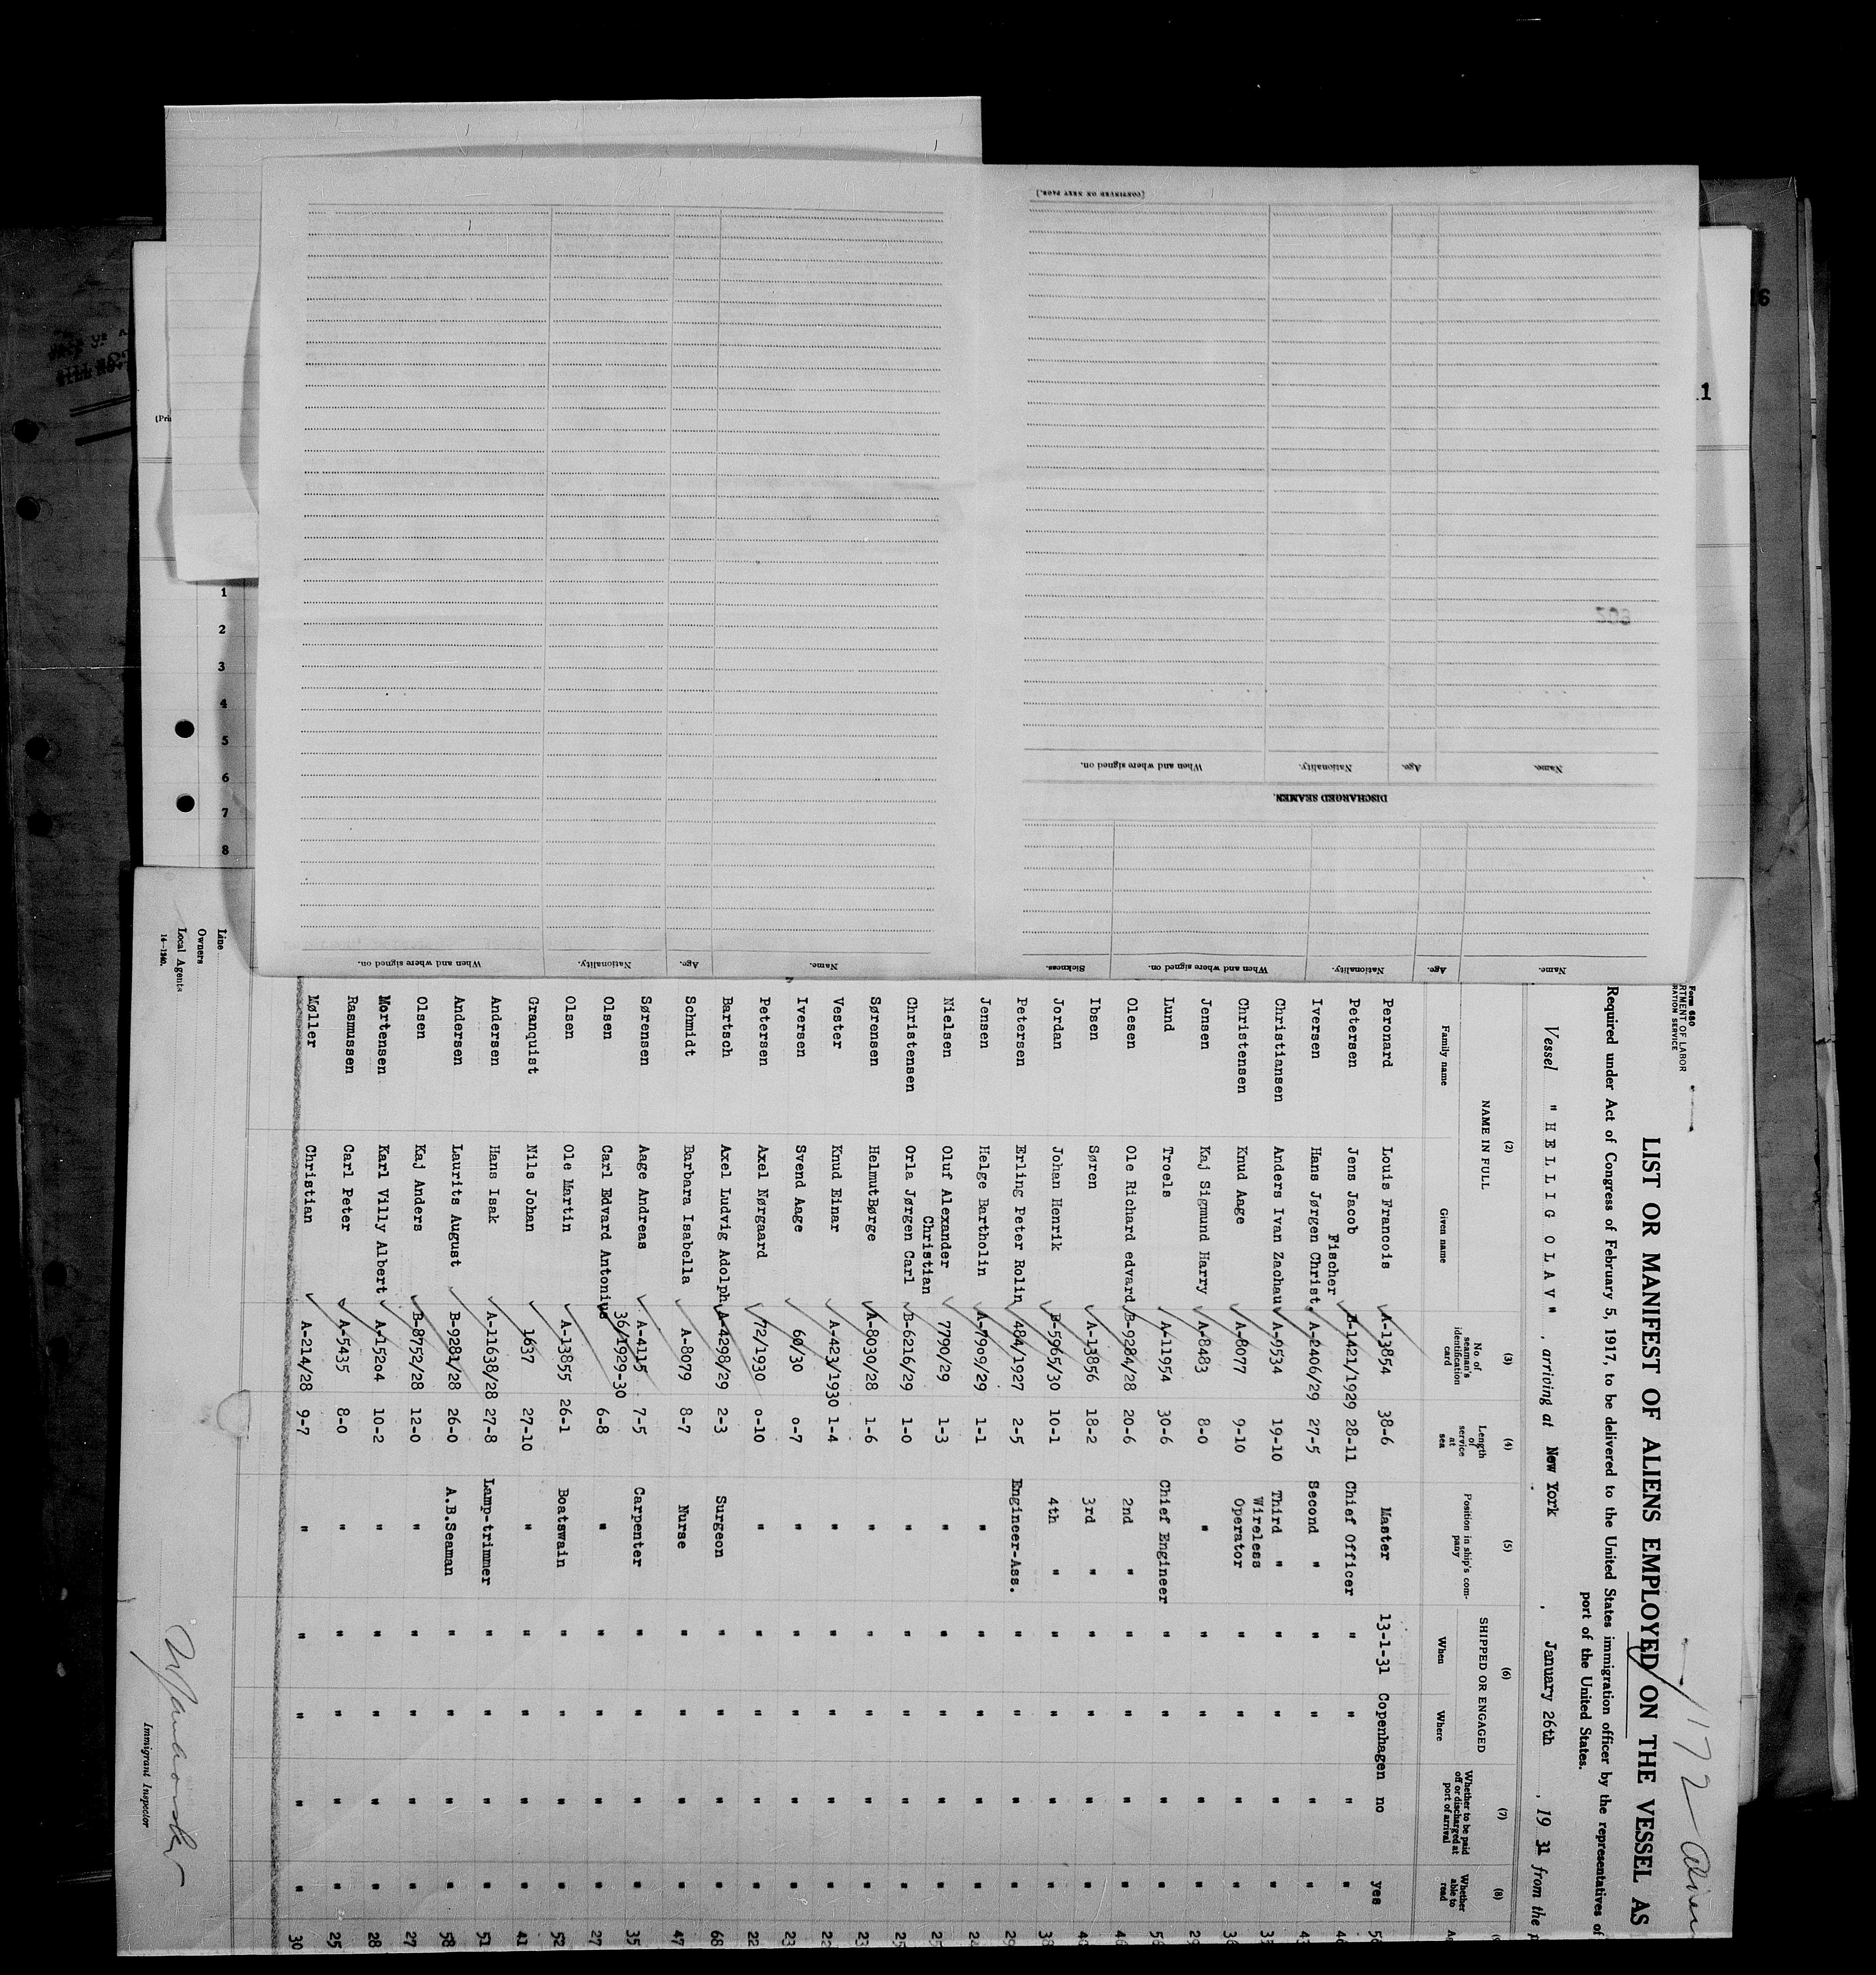 [CONTINUED ON NEXT PAGE.]
Name. Age. Nationality. When and where signed on.
DISCHARGED SEAMEN.
Name. Age. Nationality. When and where signed on. Sickness.
Name. Age. Nationality. When and where signed on.
1
2
3
4
5
6
7
8
Form 680
LIST OR MANIFEST OF ALIENS EMPLOYED ON THE VESSEL AS
Required under Act of Congress of February 5, 1917, to be delivered to the United States immigration officer by the representatives of
port of the United States.
Vessel "HELLIG OLAV", arriving at New York, January 26th, 1931 from the p
(2) (3) (4) (5) (6) (7) (8)
NAME IN FULL No. of seaman's identification card Length of service at sea Position in ship's company SHIPPED OR ENGAGED Whether to be paid off or discharged at port of arrival Whether able to read
Family name Given name When Where
Peronard Louis Francois A-13854 38-6 Master 13-1-31 Copenhagen no yes
Petersen Jens Jacob Fischer B-1421/1929 28-11 Chief Officer " " " " 46
Iversen Hans Jørgen Christ. A-2406/29 27-5 Second " " " " "
Christiansen Anders Ivan Zachau A-9534 19-10 Third " " " " "
Christensen Knud Aage A-8077 9-10 Wireless Operator " " " " 36
Jensen Kaj Sigmund Harry A-8483 8-0 " " " " " 29
Lund Troels A-11954 30-6 Chief Engineer " " " " 56
Olesen Ole Richard edvard B-9284/28 20-6 2nd " " " " " 46
Ibsen Søren A-13856 18-2 3rd " " " " " 40
Jordan Johan Henrik B-5965/30 10-1 4th " " " " " 38
Petersen Erling Peter Rolin 484/1927 2-5 Engineer-Ass. " " " " 29
Jensen Helge Bartholin A-7909/29 1-1 " " " " " 24
Nielsen Oluf Alexander Christian 7790/29 1-3 " " " " " 25
Christensen Orla Jørgen Carl B-6216/29 1-0 " " " " " 25
Sørensen HelmutBørge A-8030/28 1-6 " " " " " 23
Vester Knud Einar A-423/1930 1-4 " " " " " 22
Iversen Svend Aage 68/30 0-7 " " " " " 23
Petersen Axel Nørgaard 72/1930 0-10 " " " " " 22
Bartsch Axel Ludvig Adolph A-4298/29 2-3 Surgeon " " " " 68
Schmidt Barbara Isabella A-8079 8-7 Nurse " " " " 47
Sørensen Aage Andreas A-4115 7-5 Carpenter " " " " 35
Olsen Carl Edvard Antonius 36/1929-30 6-8 " " " " " 27
Olsen Ole Martin A-13855 26-1 Boatswain " " " " 52
Granquist Nils Johan 1637 27-10 " " " " " 41
Andersen Hans Isak A-11638/28 27-8 Lamp-trimmer " " " " 51
Andersen Laurits August B-9281/28 26-0 A.B.Seaman " " " " 58
Olsen Kaj Anders B-8752/28 12-0 " " " " " 27
Mortensen Karl Villy Albert A-15204 10-2 " " " " " 28
Rasmussen Carl Peter A-5435 8-0 " " " " " 25
Møller Christian A-214/28 9-7 " " " " " 30
Line
Owners
Local Agents
Immigrant Inspector